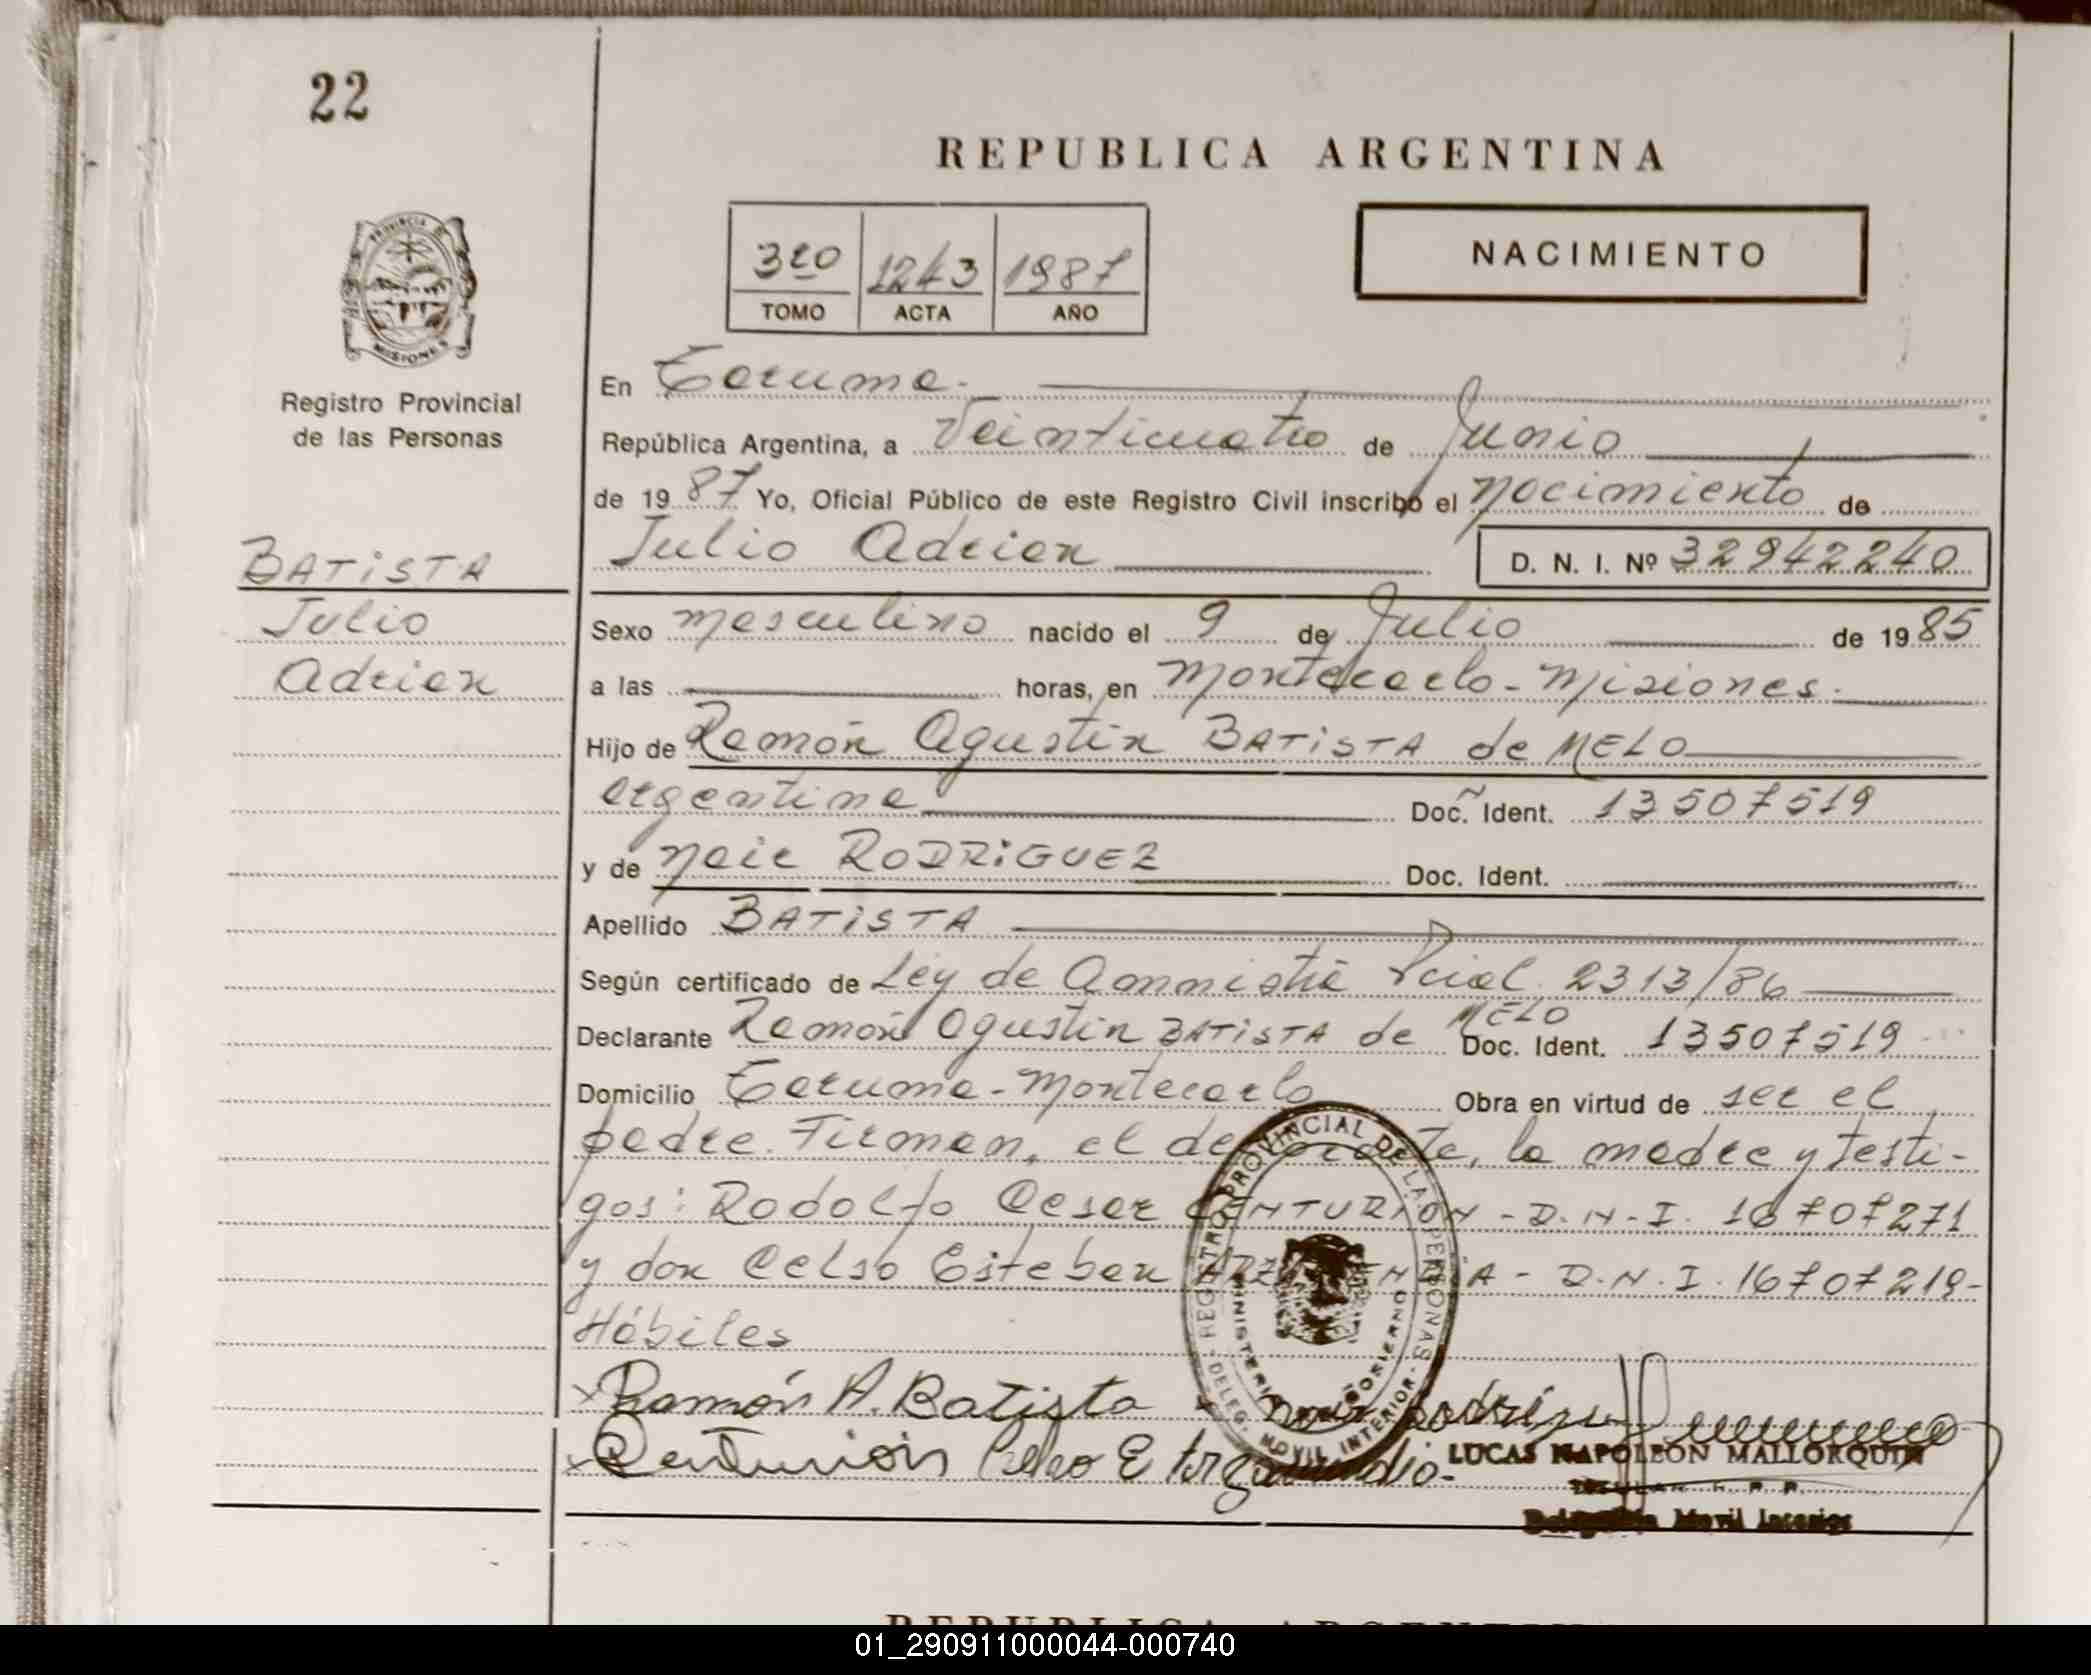 22
REPUBLICA ARGENTINA
3ro 1243 1987
TOMO ACTA AÑO
NACIMIENTO
PROVINCIA DE MISIONES
Registro Provincial
de las Personas
En Taruma.
República Argentina, a Veinticuatro de Junio
de 1987 Yo, Oficial Público de este Registro Civil inscribo el nacimiento de
Julio Adrian D. N. I. Nº 32942240
BATISTA
Julio
Adrian
Sexo masculino nacido el 9 de Julio de 1985
a las horas, en Montecarlo - Misiones.
Hijo de Ramón Agustin BATISTA de MELO
argentina Doc. Ident. 13507519
y de Nair RODRIGUEZ Doc. Ident.
Apellido BATISTA
Según certificado de Ley de Amnistia Pcial. 2313/86
Declarante Ramón Agustin BATISTA de MELO Doc. Ident. 13507519
Domicilio Taruma - Montecarlo Obra en virtud de ser el
padre. Firman, el declarante, la madre y testi-
gos: Rodolfo Cesar CENTURIÓN - D.N.I. 16707271
y don Celso Esteban - D.N.I. 16707219-
Hábiles
REGISTRO PROVINCIAL DE LAS PERSONAS
MINISTERIO GOBIERNO
DELEG. MOVIL INTERIOR
Ramón A. Batista Nair Rodríguez
Centurión Celso E
LUCAS NAPOLEON MALLORQUIN
TITULAR R. P. P.
Movil
REPUBLICA ARGENTINA
01_290911000044-000740